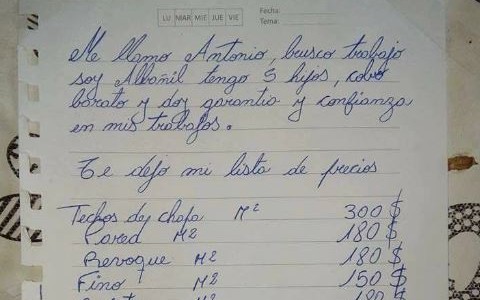 LU MAR MIE JUE VIE
Fecha:
Tema:
Me llamo Antonio, busco trabajo
soy Albañil tengo 5 hijos, cobro
barato y doy garantia y confianza
en mis trabajos.
Te dejo mi lista de precios
Techos de chapa M² 300 $
Pared M² 180 $
Revoque M² 180 $
Fino M² 150 $
M² 180 $